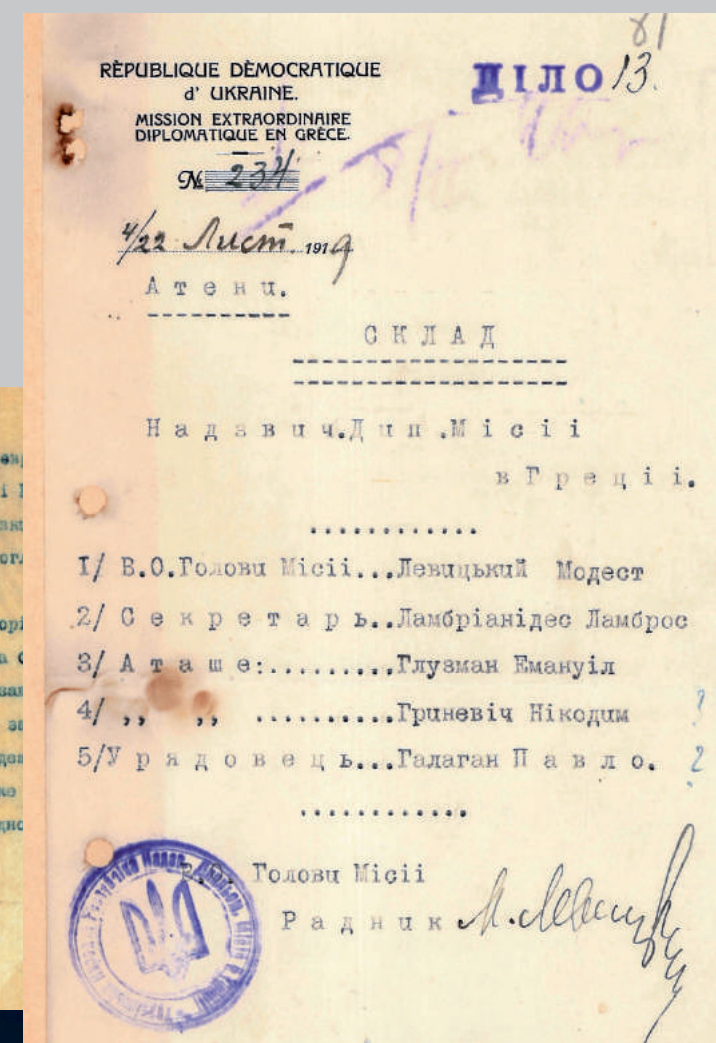 81
RÈPUBLIQUE DÈMOCRATIQUE
d' UKRAINE.
MISSION EXTRAORDINAIRE
DIPLOMATIQUE EN GRÈCE.
ДІЛО 13.
№ 234
4/22 Лист. 1919
Атени.
СКЛАД
Надзвич.Дип.Місіі
в Греціі.
1/ В.О.Голови Місіі...Левицький Модест
2/ Секретарь..Ламбріанідес Ламброс
3/ Аташе:.........Глузман Емануіл
4/ ,, ,, ..........Гриневіч Нікодим ?
5/Урядовець...Галаган Павло. ?
Голови Місіі
Радник М. Левицький